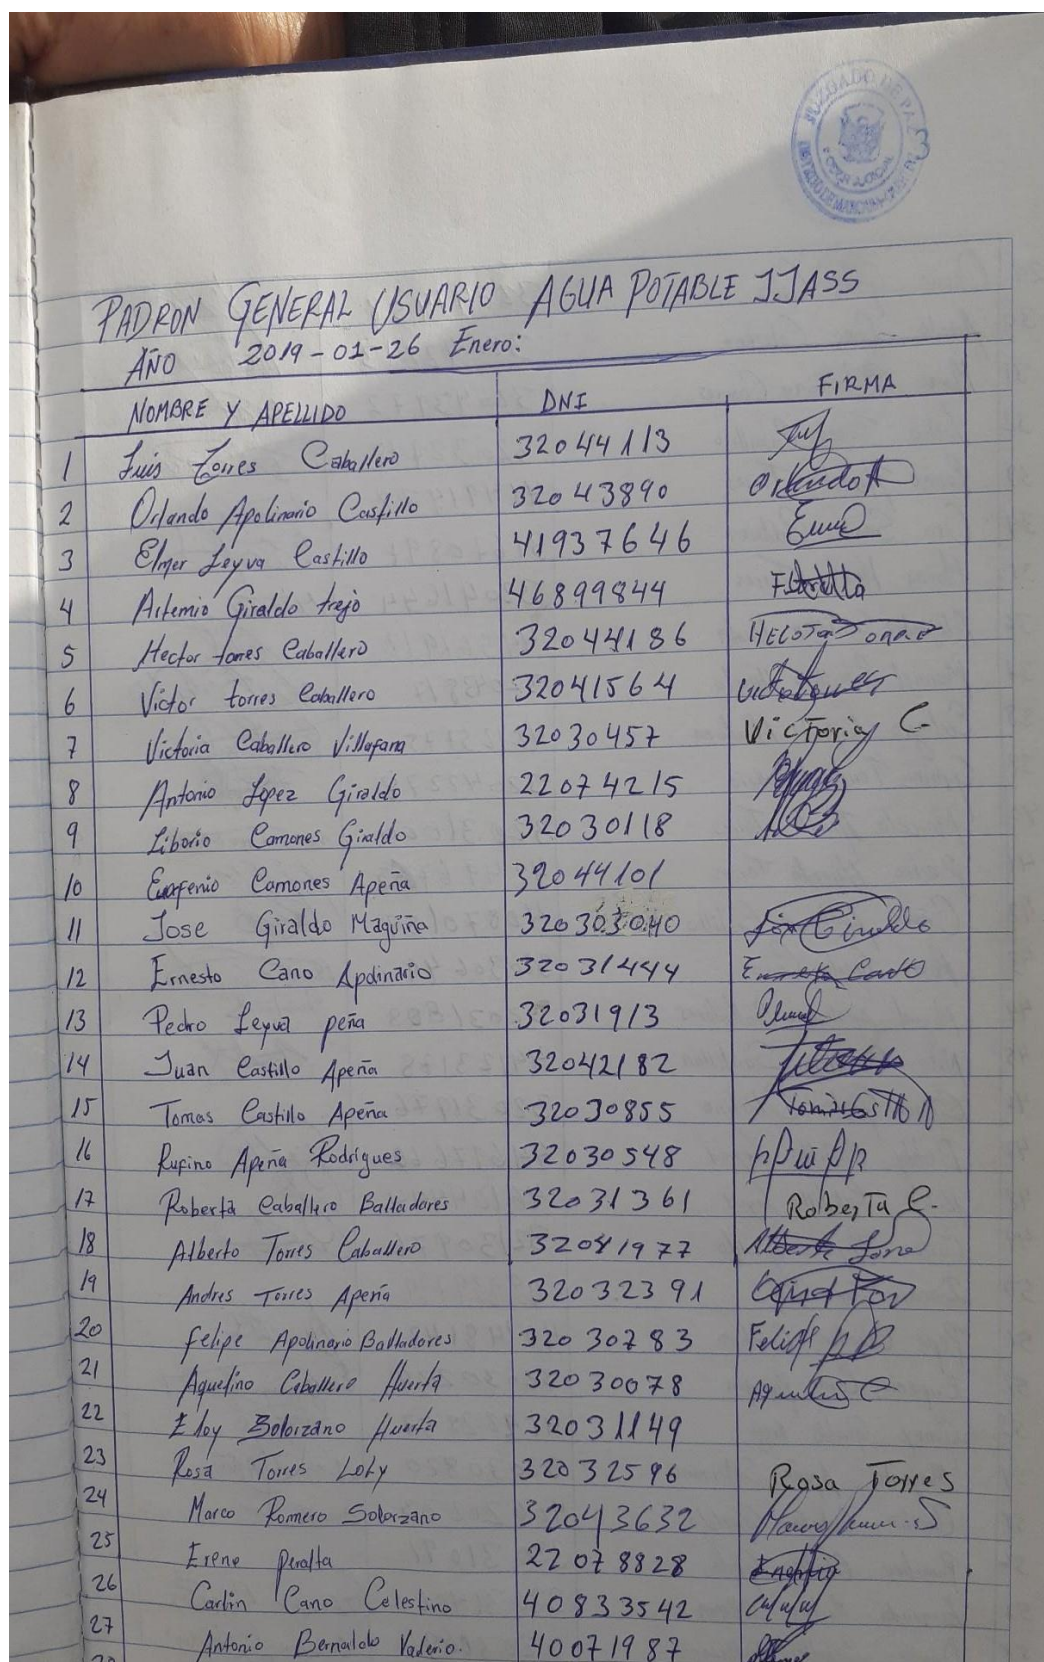 JUZGADO DE PAZ
PODER JUDICIAL
3
PADRON GENERAL USUARIO AGUA POTABLE JJASS
AÑO 2019-01-26 Enero:
NOMBRE Y APELLIDO DNI FIRMA
1 Luis Torres Caballero 32044113
2 Orlando Apolinario Castillo 32043890 Orlando A
3 Elmer Leyva Castillo 41937646
4 Artemio Giraldo trejo 46899844
5 Hector torres Caballero 32044186
6 Victor torres Caballero 32041564
7 Victoria Caballero Villafana 32030457 Victoria C.
8 Antonio Lopez Giraldo 22074215
9 Liborio Camones Giraldo 32030118
10 Eugenio Camones Apeña 32044101
11 Jose Giraldo Maguiña 320303040 Giraldo
12 Ernesto Cano Apolinario 32031444 Cano
13 Pedro Leyva peña 32031913
14 Juan Castillo Apeña 32042182
15 Tomas Castillo Apeña 32030855
16 Rufino Apeña Rodrigues 32030548
17 Roberta Caballero Balladares 32031361 Roberta C.
18 Alberto Torres Caballero 32041977
19 Andres Torres Apeña 32032391
20 felipe Apolinario Balladores 32030783 Felipe
21 Aquelino Caballero Huerta 32030078
22 Eloy Solorzano Huerta 32031149
23 Rosa Torres Loly 32032596 Rosa Torres
24 Marco Romero Solorzano 32043632
25 Erene Peralta 22078828
26 Carlin Cano Celestino 40833542
27 Antonio Bernaldo Valerio. 40071987